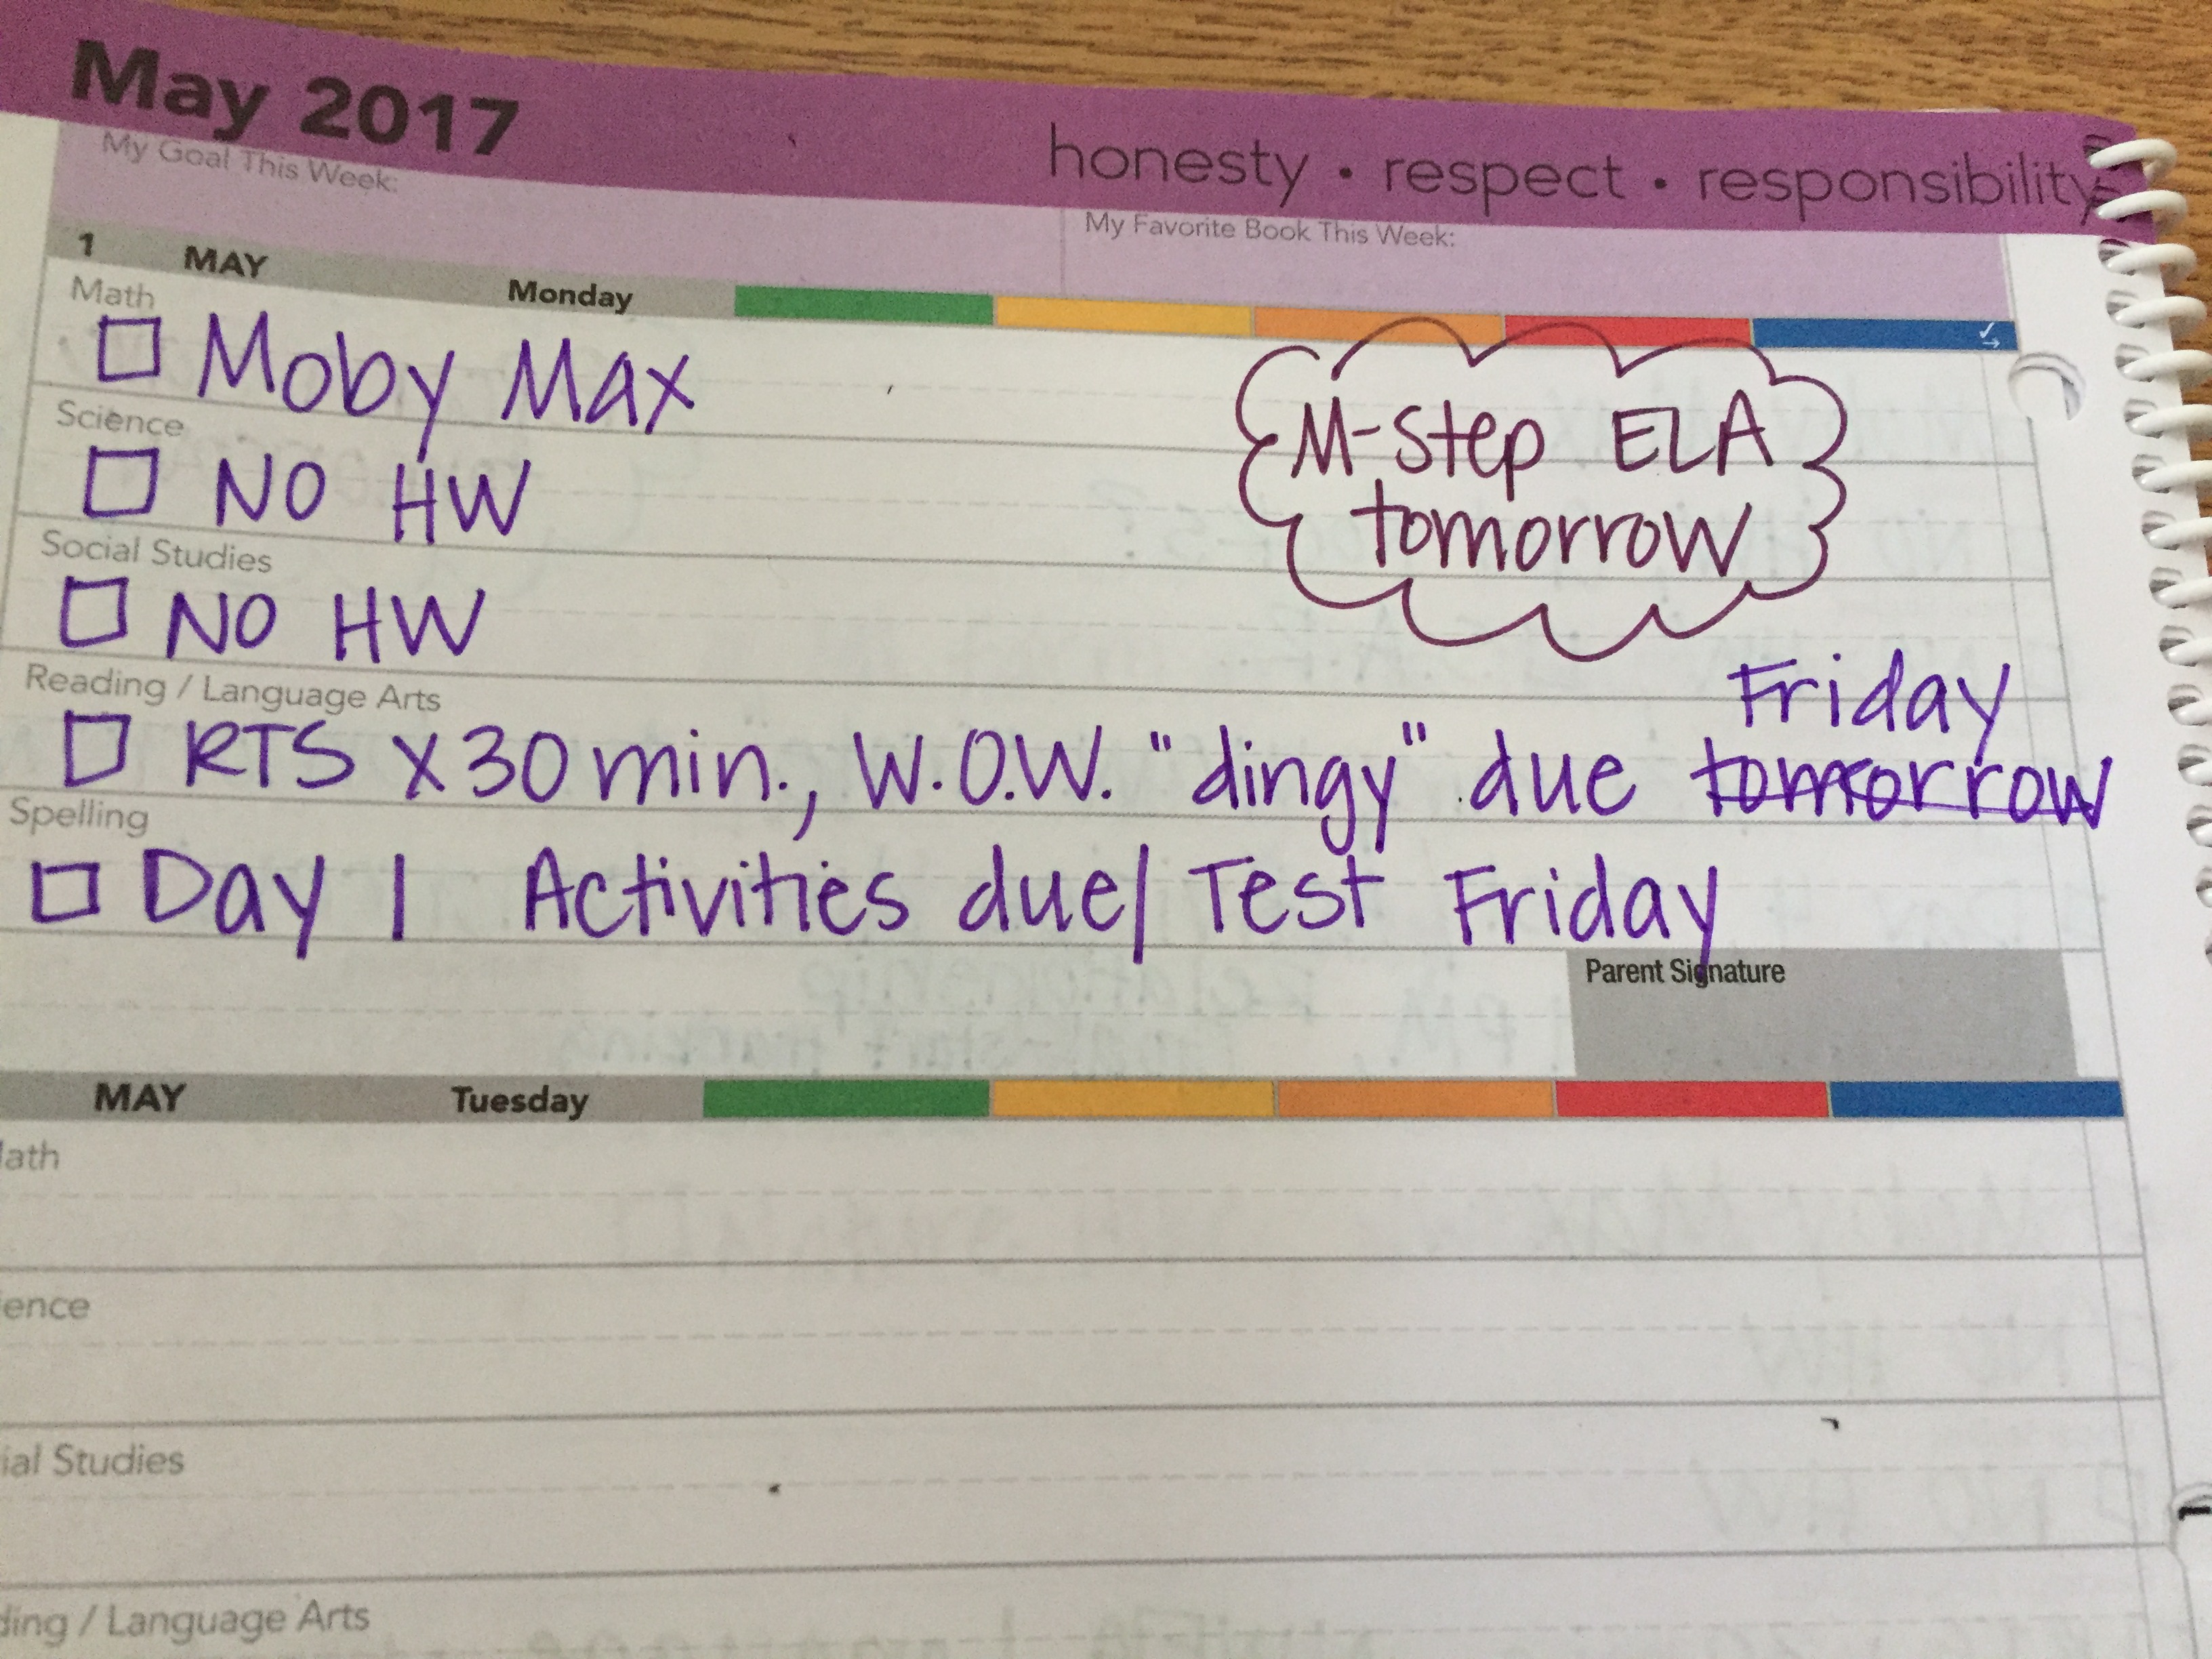 May 2017
honesty • respect • responsibility
My Goal This Week:
My Favorite Book This Week:
1 MAY Monday
Math
Moby Max
M-Step ELA
tomorrow
Science
NO HW
Social Studies
NO HW
Reading / Language Arts
Friday
RTS x 30 min., W.O.W. "dingy" due tomorrow
Spelling
Day 1 Activities due/ Test Friday
Parent Signature
MAY Tuesday
ath
ence
ial Studies
ding / Language Arts